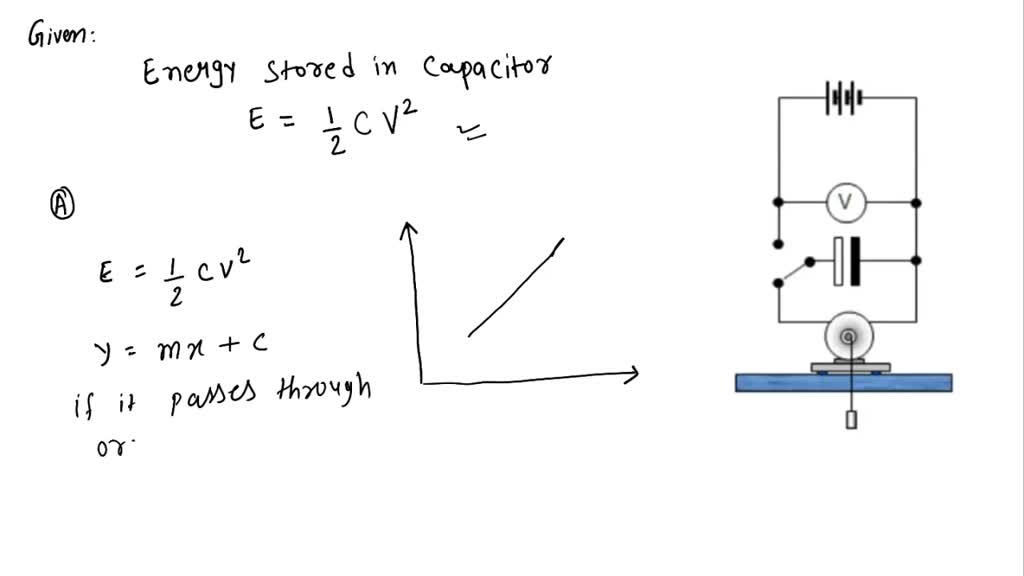 Given:
Energy stored in capacitor
E = 1/2 C V²
A
E = 1/2 C V²
y = mx + c
if it passes through
or
V